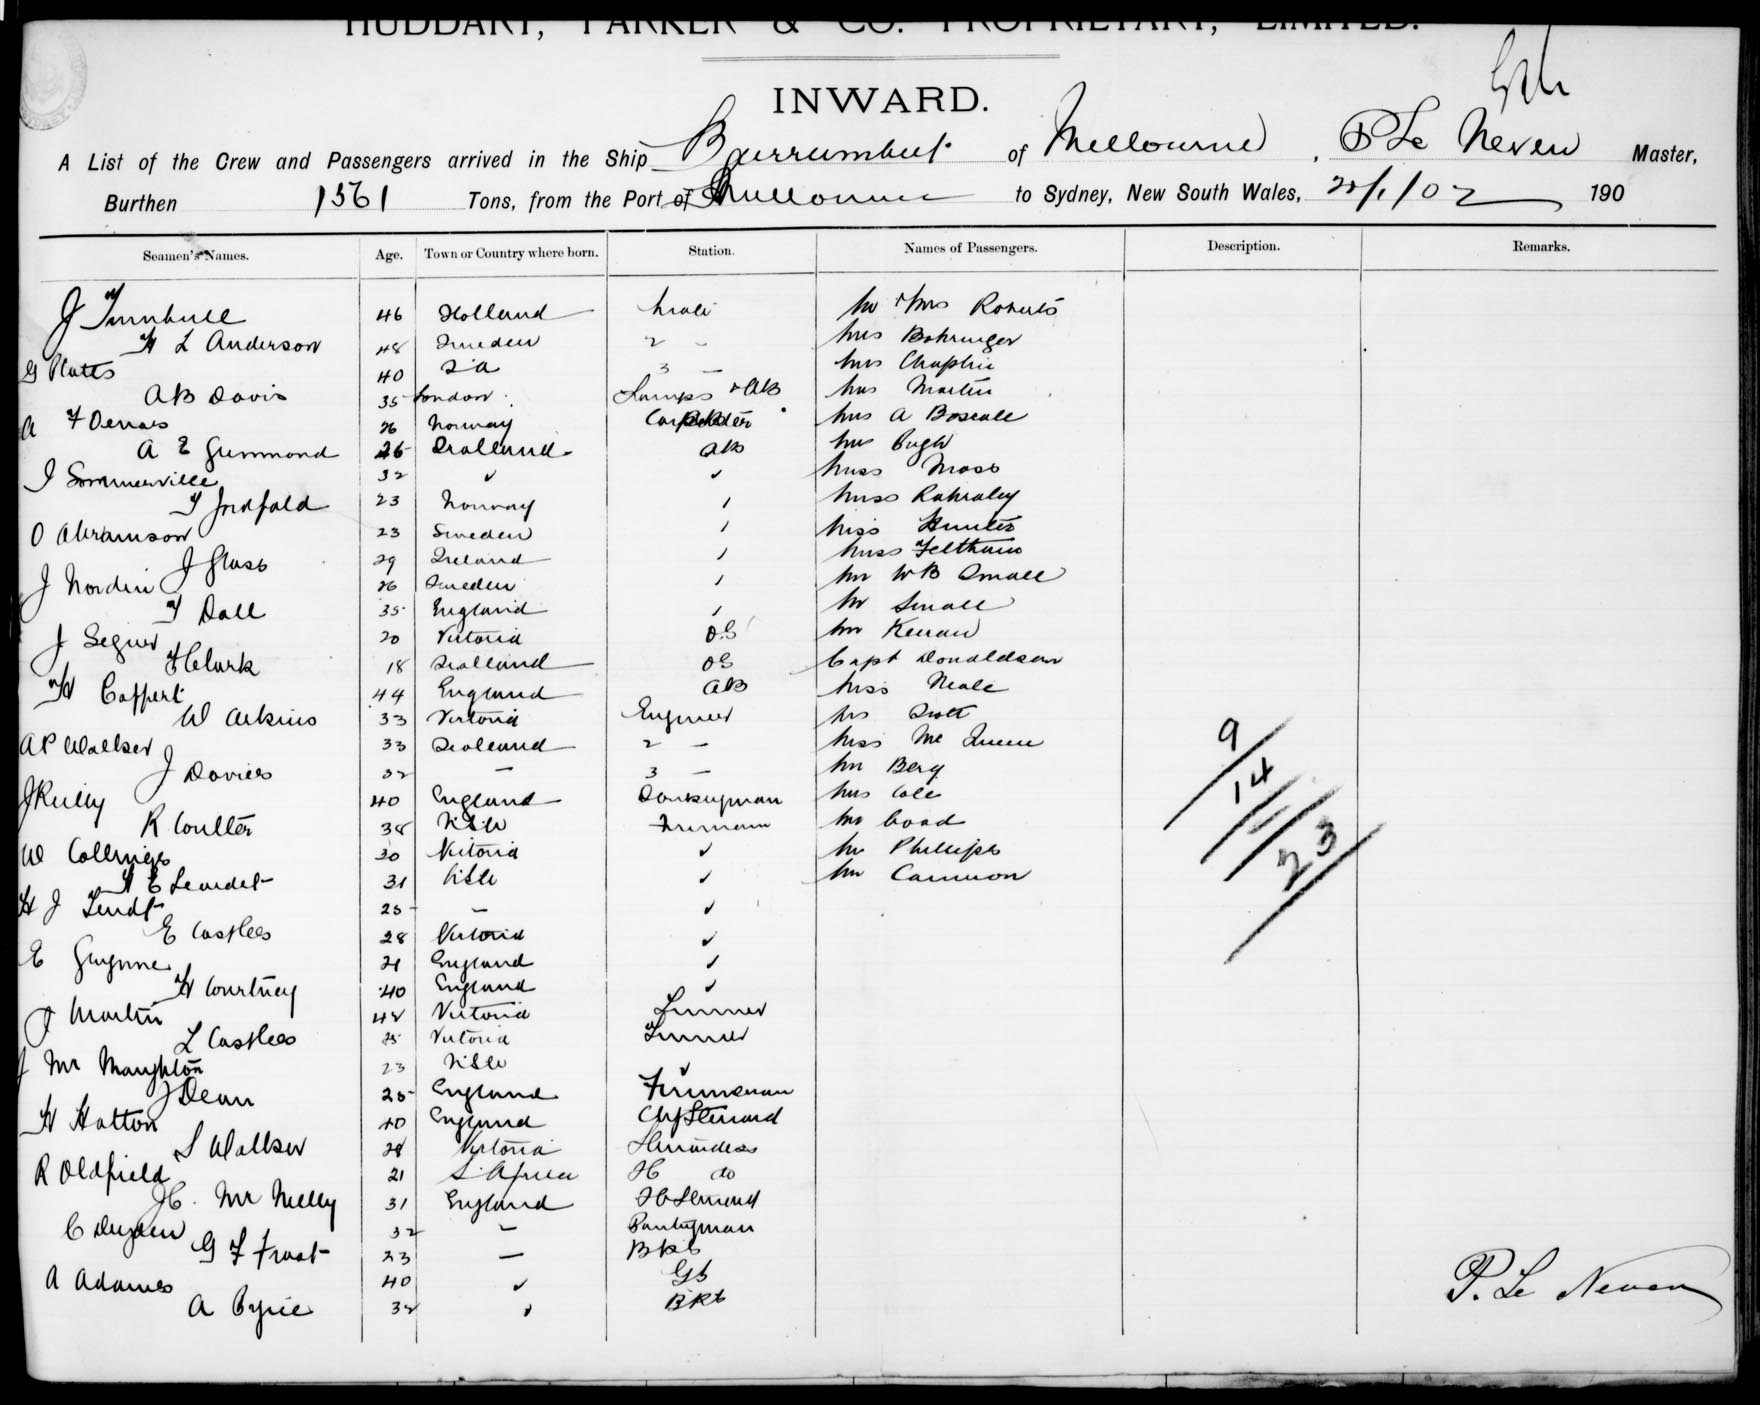 HUDDART, PARKER & CO. PROPRIETARY, LIMITED.
INWARD.
A List of the Crew and Passengers arrived in the Ship Burrumbeet of Melbourne, P Le Neven Master,
Burthen 1561 Tons, from the Port of Melbourne to Sydney, New South Wales, 22/1/02 190
Seamen's Names. Age. Town or Country where born. Station. Names of Passengers. Description. Remarks.
J Turnbull 46 Holland Mate Mr & Mrs Roberts
H L Anderson 48 Sweden 2 - Mrs Bohringer
G Plates 40 Do 3 - Mrs Chaplin
AB Davis 35 London Lamps & AB Mrs Martin
A F 26 Norway Carpenter Mrs A Boscale
A E Grummond 26 Scotland AB Mrs Pugh
J Sommerville 32 ✓ ✓ Miss Moss
T Jndfald 23 Norway Miss
O Abramson 23 Sweden Miss Hunter
J Glass 29 Ireland Miss Feltham
J Nordin 26 Sweden Mr W B Small
T Dall 35 England Mr Small
J Segur 20 Victoria OS Mr Kenan
F Clark 18 Scotland OS Capt Donaldson
H Coppert 44 England AB Miss Neale
W Atkins 33 Victoria Engineer Mrs Scott
A P Walker 33 Scotland 2 - Miss Mc Queen
J Davies 32 - 3 - Mr Berg
J Reilly 40 England Donkeyman Mrs Cole
R Coulter 38 NSW Fireman Mr Coad
W Collings 30 Victoria ✓ Mr Phillips
H E Leardet 31 NSW ✓ Mr Cameron
H J Lindt 25 - ✓
E Castles 28 Victoria ✓
E Gwynne 21 England ✓
H Courtney 40 England ✓
J Martin 42 Victoria Trimmer
L Castles 25 Victoria Trimmer
J Mc Naughton 23 NSW ✓
J Dean 25 England
H Hatton 40 England Chf Steward
S Walker 28 Victoria Stewardess
R Oldfield 21 S. Africa do
J C. Mc Nelly 31 England Steward
C Dryden 32 - Pantryman
G F Frost 23 - Bks
A Adames 40 ✓
A Pyrie 32 ✓ Bks
9
14
23
P. Le Neven